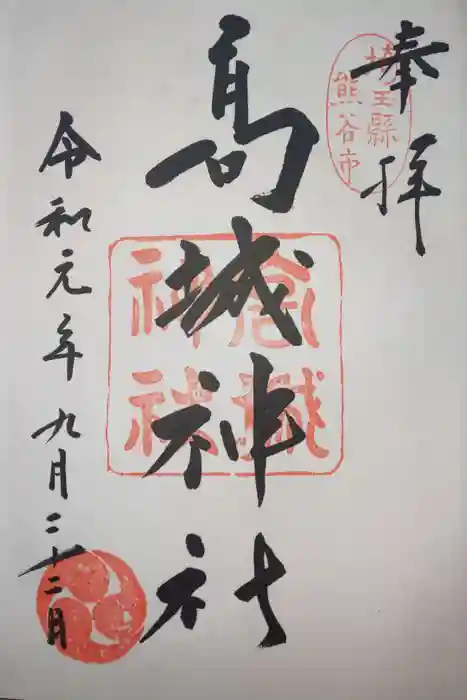 奉拝
埼玉縣
熊谷市
高城神社
高城
神社
令和元年九月二十二月